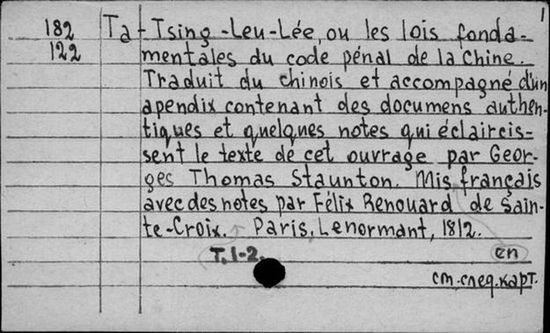 1
182 Ta-Tsing-Leu-Lée, ou les lois fonda-
122 mentales du code pénal de la Chine.
Traduit du chinois et accompagné d'un
apendix contenant des documens authen-
tiques et quelques notes qui éclaircis-
sent le texte de cet ouvrage par Geor-
ges Thomas Staunton. Mis français
avec des notes par Félix Renouard de Sain-
te-Croix. Paris, Lenormant, 1812.
T. 1-2. en
см. след. карт.